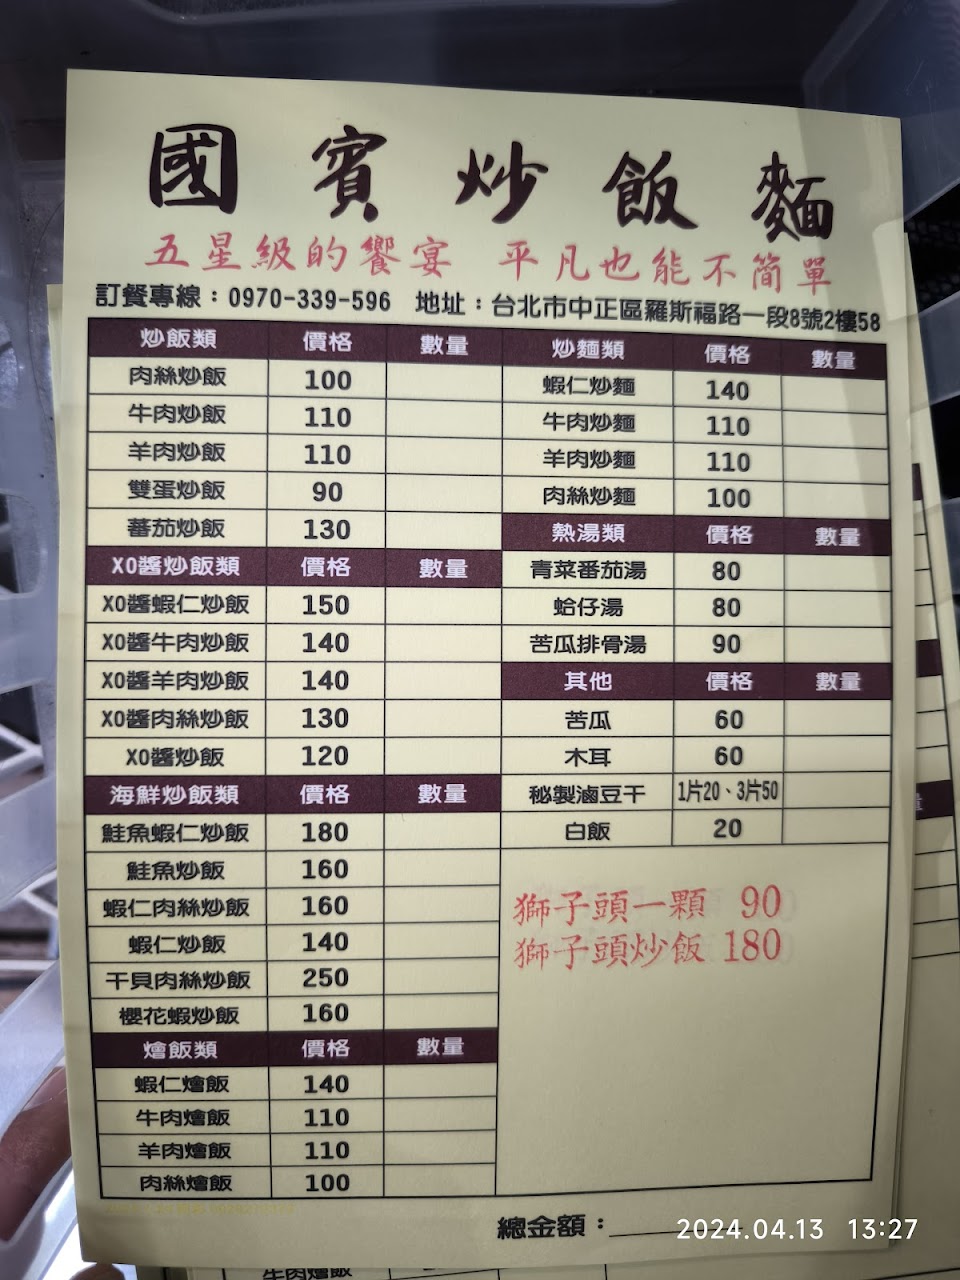 國賓炒飯麵
五星級的饗宴 平凡也能不簡單
訂餐專線：0970-339-596 地址：台北市中正區羅斯福路一段8號2樓58
炒飯類 價格 數量
肉絲炒飯 100
牛肉炒飯 110
羊肉炒飯 110
雙蛋炒飯 90
蕃茄炒飯 130
XO醬炒飯類 價格 數量
XO醬蝦仁炒飯 150
XO醬牛肉炒飯 140
XO醬羊肉炒飯 140
XO醬肉絲炒飯 130
XO醬炒飯 120
海鮮炒飯類 價格 數量
鮭魚蝦仁炒飯 180
鮭魚炒飯 160
蝦仁肉絲炒飯 160
蝦仁炒飯 140
干貝肉絲炒飯 250
櫻花蝦炒飯 160
燴飯類 價格 數量
蝦仁燴飯 140
牛肉燴飯 110
羊肉燴飯 110
肉絲燴飯 100
炒麵類 價格 數量
蝦仁炒麵 140
牛肉炒麵 110
羊肉炒麵 110
肉絲炒麵 100
熱湯類 價格 數量
青菜番茄湯 80
蛤仔湯 80
苦瓜排骨湯 90
其他 價格 數量
苦瓜 60
木耳 60
秘製滷豆干 1片20、3片50
白飯 20
獅子頭一顆 90
獅子頭炒飯 180
總金額：
2024.04.13 13:27
牛肉燴飯